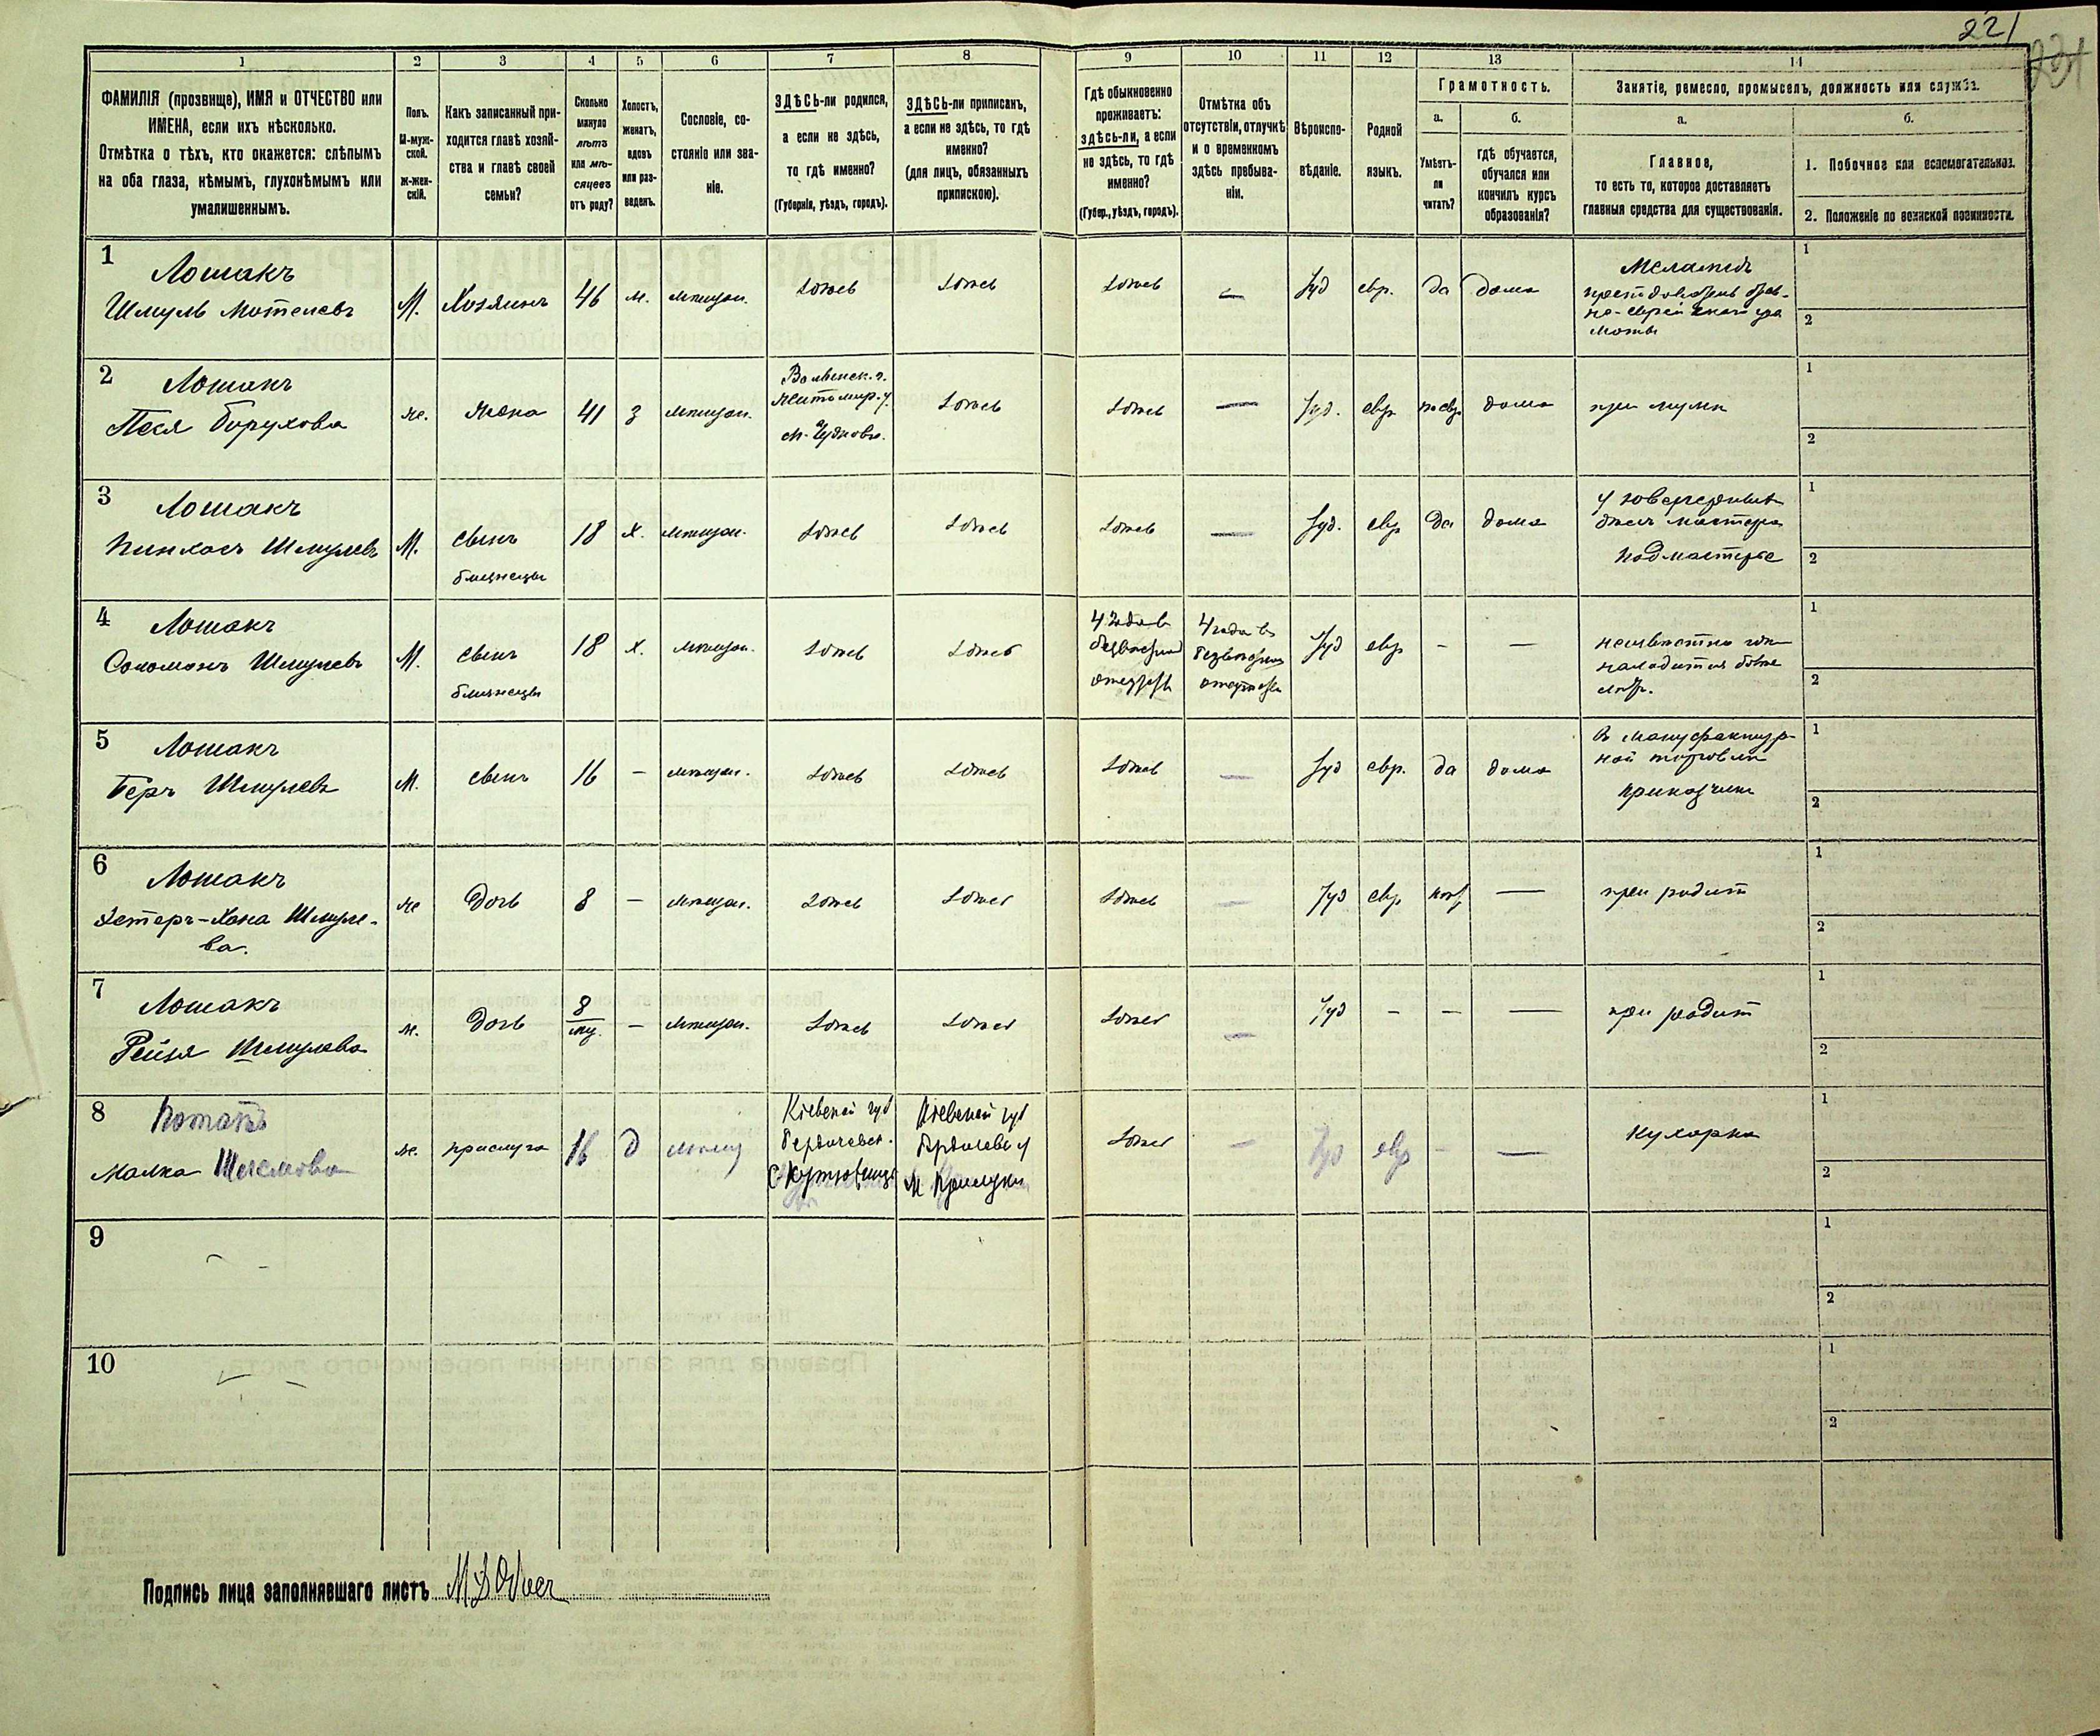 221
221
1 2 3 4 5 6 7 8 9 10 11 12 13 14
ФАМИЛІЯ (прозвище), ИМЯ и ОТЧЕСТВО или
ИМЕНА, если ихъ нѣсколько.
Отмѣтка о тѣхъ, кто окажется: слѣпымъ
на оба глаза, нѣмымъ, глухонѣмымъ или
умалишеннымъ.
Полъ.
М-муж-
ской.
Ж-жен-
скій.
Какъ записанный при-
ходится главѣ хозяй-
ства и главѣ своей
семьи?
Сколько
минуло
лѣтъ
или мѣ-
сяцевъ
отъ роду?
Холостъ,
женатъ,
вдовъ
или раз-
веденъ.
Сословіе, со-
стояніе или зва-
ніе.
ЗДѢСЬ-ли родился,
а если не здѣсь,
то гдѣ именно?
(Губернія, уѣздъ, городъ).
ЗДѢСЬ-ли приписанъ,
а если не здѣсь, то гдѣ
именно?
(для лицъ, обязанныхъ
припискою).
Гдѣ обыкновенно
проживаетъ:
здѣсь-ли, а если
не здѣсь, то гдѣ
именно?
(Губер., уѣздъ, городъ).
Отмѣтка объ
отсутствіи, отлучкѣ
и о временномъ
здѣсь пребыва-
ніи.
Вѣроиспо-
вѣданіе.
Родной
языкъ.
Грамотность.
а.
Умѣетъ-
ли
читать?
б.
гдѣ обучается,
обучался или
кончилъ курсъ
образованія?
Занятіе, ремесло, промыселъ, должность или служба.
а.
Главное,
то есть то, которое доставляетъ
главныя средства для существованія.
б.
1. Побочное или вспомогательное.
2. Положеніе по воинской повинности.
1
Лошакъ
Шмуль Мотелевъ
М. Хозяинъ 46 ж. мѣщан. здѣсь здѣсь здѣсь — Іуд евр. да дома
Меламедъ
1
2
2
Лошакъ
Песя Борухова
же. жена 41 з мѣщан.
Волынск. г.
Житомир. у.
м. Чудновъ.
здѣсь здѣсь — Іуд. евр. дома при мужѣ
1
2
3
Лошакъ
Пинхосъ Шмулевъ
М. сынъ
близнецы
18 х. мѣщан. здѣсь здѣсь здѣсь — Іуд. евр да дома
мастера
Подмастерье
1
2
4
Лошакъ
Соломонъ Шмулевъ
М. сынъ
близнецы
18 х. мѣщан. здѣсь здѣсь
4 года въ
4 года въ
Іуд евр - —
неизвѣстно
находится
1
2
5
Лошакъ
Беръ Шмулевъ
М. сынъ 16 — мѣщан. здѣсь здѣсь здѣсь — Іуд евр. да дома
въ мануфактур-
ной торговли
приказчикъ
1
2
6
Лошакъ
Эстеръ-Хана Шмуле-
ва.
же дочь 8 — мѣщан. здѣсь здѣсь здѣсь — Іуд евр — при родит
1
2
7
Лошакъ
Рейзя Шмулева
ж. дочь 8 — мѣщан. здѣсь здѣсь здѣсь — Іуд - - — при родит
1
2
8
Малка
же. прислуга 16 д мѣщ
Кіевской губ
Бердичевск.
Кіевской губ
Бердичевс у
м Прилуки
здѣсь — Іуд евр - — Кухарка
1
2
9
1
2
10
1
2
Подпись лица заполнявшаго листъ